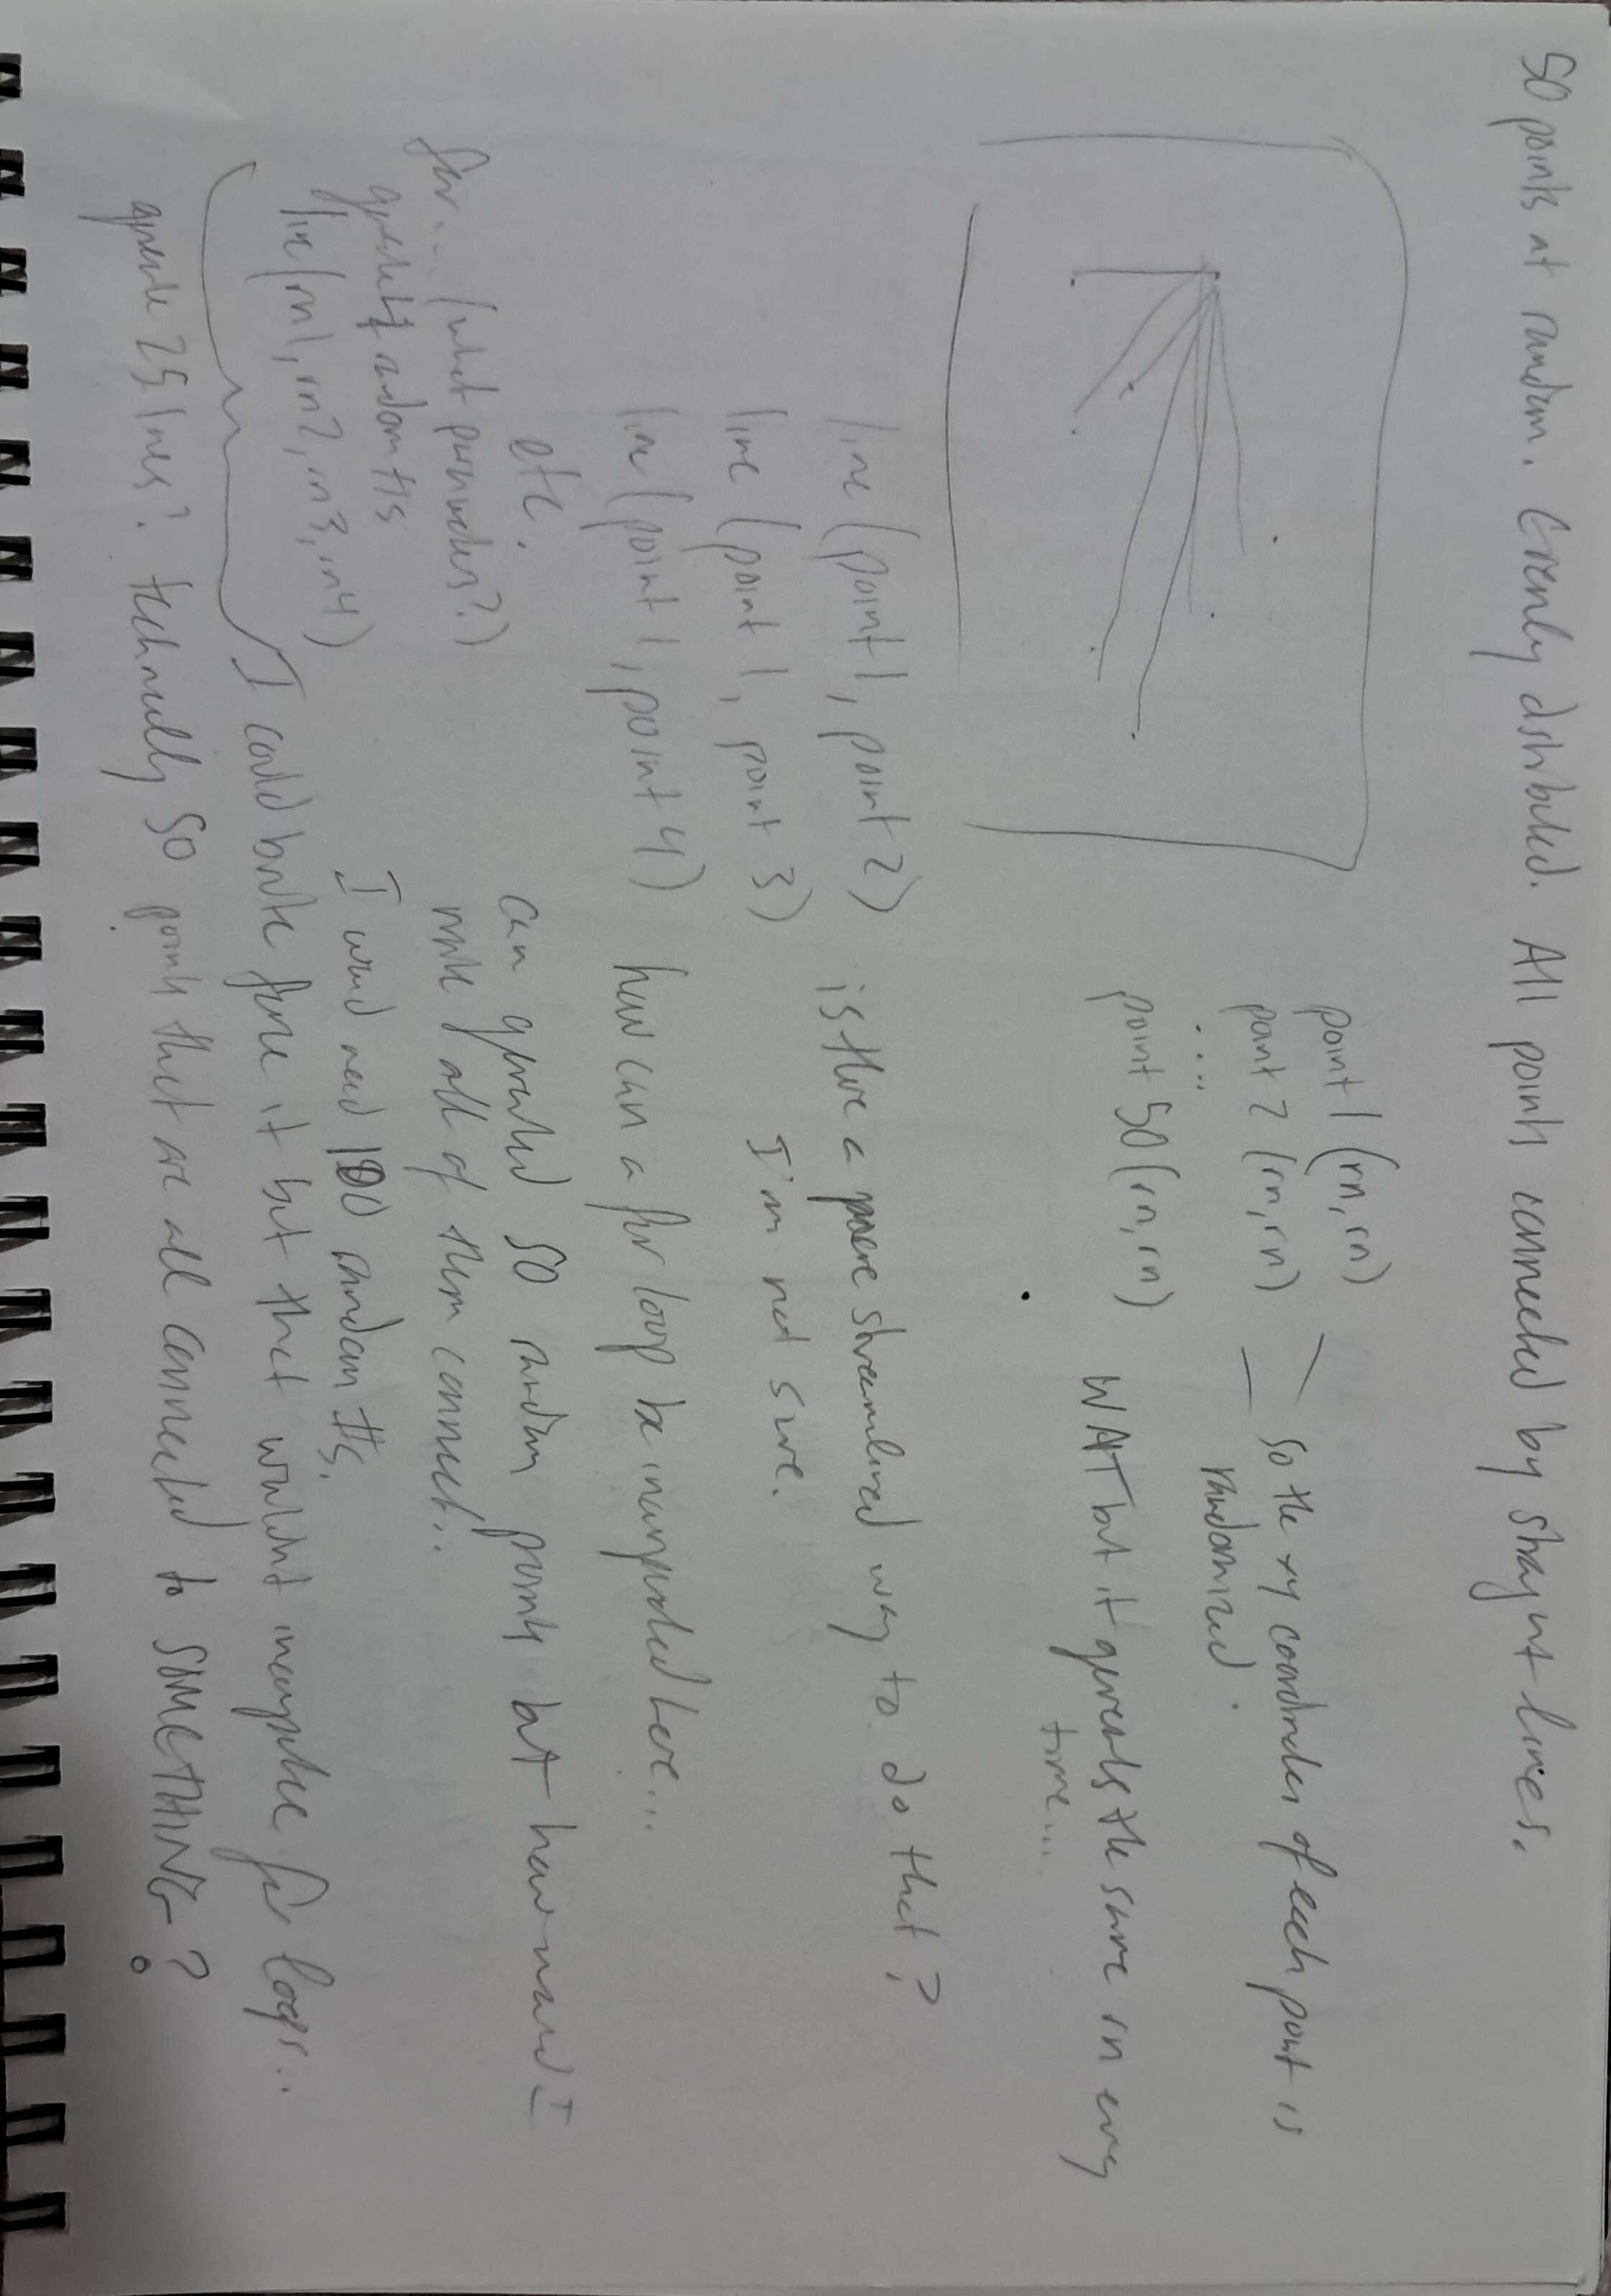 50 points at random. Evenly distributed. All points connected by straight lines.
point 1 (rn, rn)
point 2 (rn, rn)
....
point 50 (rn, rn)
so the xy coordinates of each point is
randomized.
WAIT but it generates the same rn every
time...
line (point 1, point 2)
line (point 1, point 3)
line (point 1, point 4)
etc.
is there a more streamlined way to do that?
I'm not sure.
how can a for loop be incorporated here...
can generated 50 random points but how would I
make all of them connect..
I would need 100 random #s.
for... (what parameters?)
generate 4 random #s
line (rn1, rn2, rn3, rn4)
I could brute force it but that wouldnt incorporate for loops..
generate 25 lines? technically 50 points that are all connected to SOMETHING?